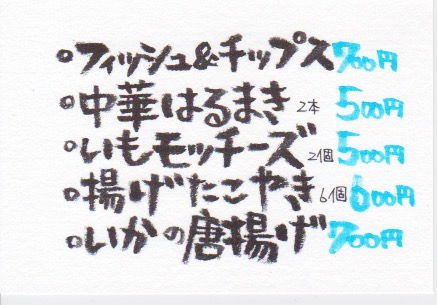 ○フィッシュ&チップス700円
○中華はるまき2本 500円
○いもモッチーズ2個500円
○揚げたこやき6個600円
○いかの唐揚げ700円